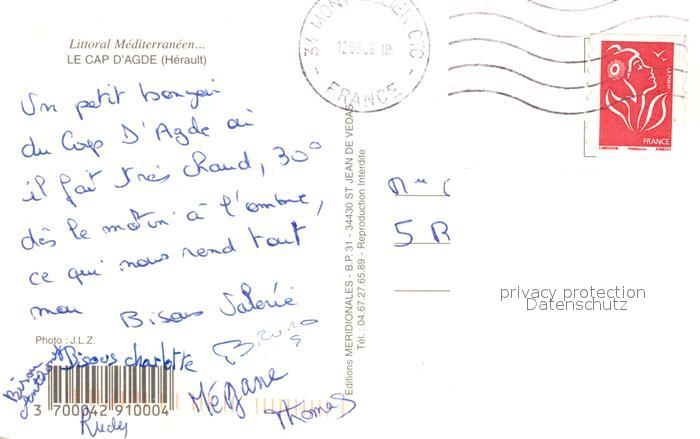 Littoral Méditerranéen...
LE CAP D'AGDE (Hérault)
Un petit bonjour
du Cap D'Agde où
il fait très chaud, 30°
dès le matin à l'ombre,
ce qui nous rend tout
mou Bisous Valérie
Photo : J.L.Z.
Bisous charlotte
BRUNO
Mégane
Thomas
Rudy
3 700042 910004
Editions MERIDIONALES - B.P. 31 - 34430 ST JEAN DE VEDAS
Tél. : 04.67.27.65.89 - Reproduction Interdite
34 MONTPELLIER CTC
12 08 08
FRANCE
LA POSTE
FRANCE
5 R
privacy protection
Datenschutz